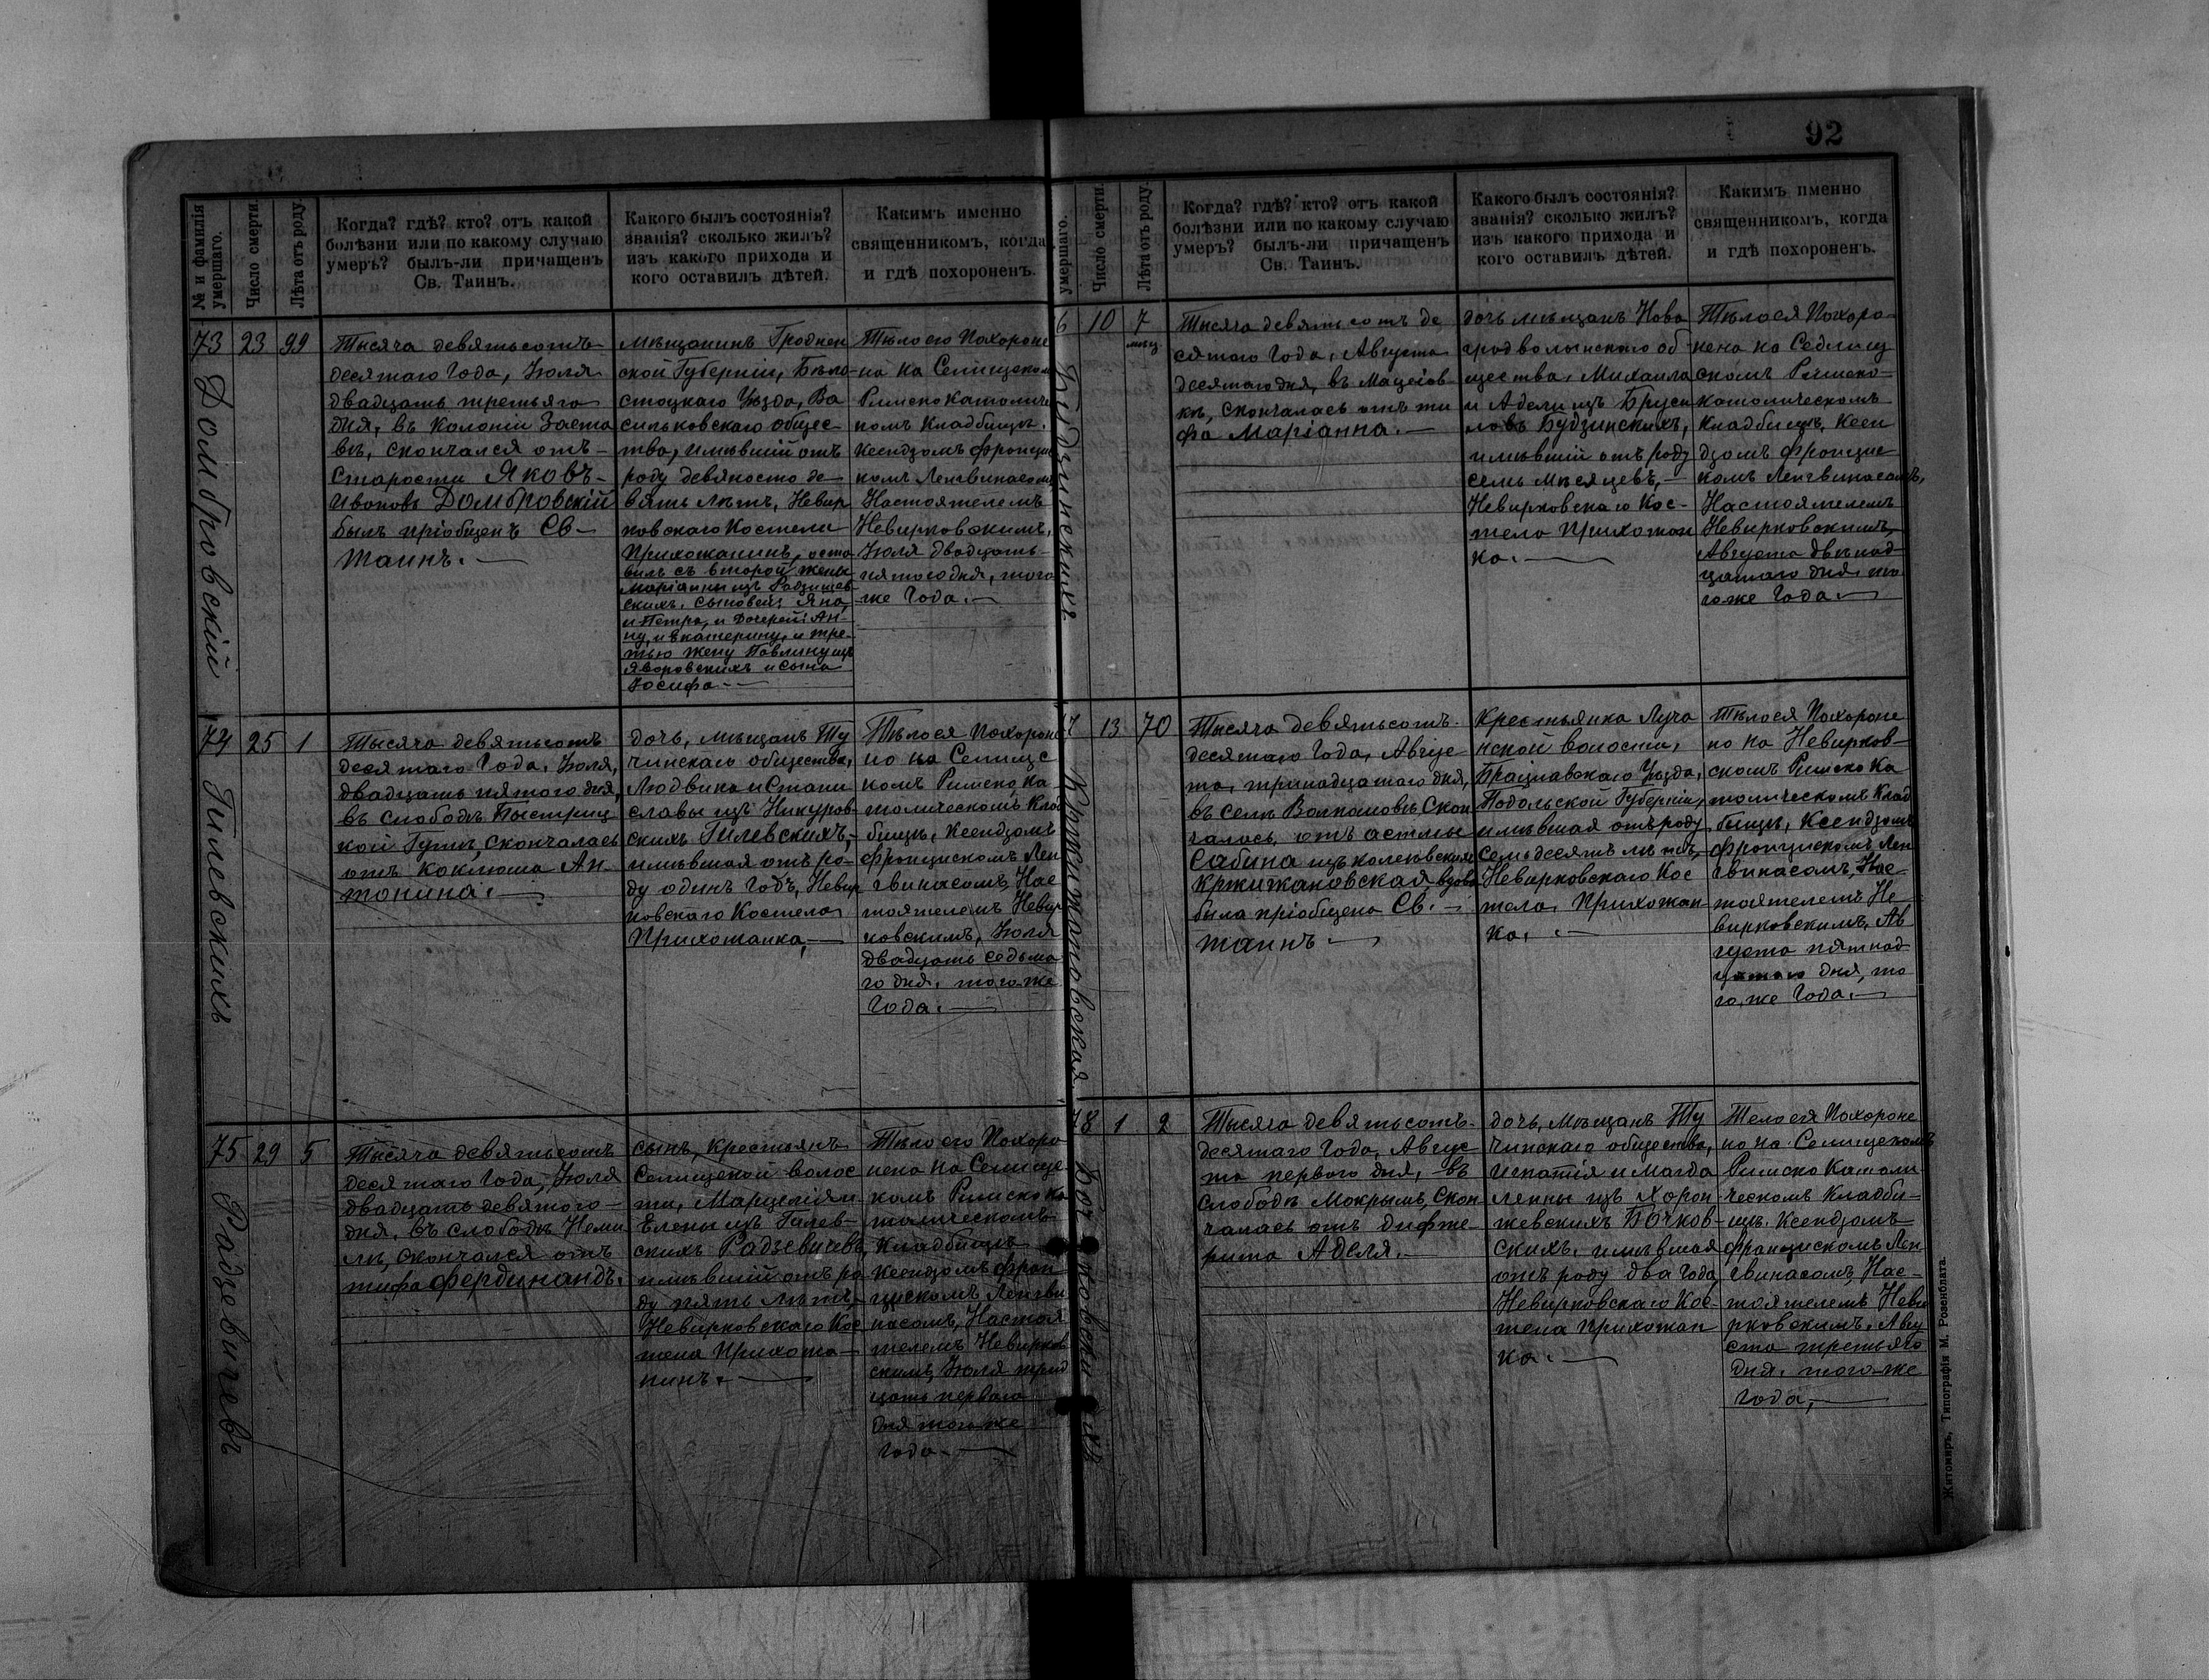 92
№ и фамилія умершаго.
Число смерти.
Лѣта отъ роду.
Когда? гдѣ? кто? отъ какой
болѣзни или по какому случаю
умеръ? былъ-ли причащенъ
Св. Таинъ.
Какого былъ состоянія?
званія? сколько жилъ?
изъ какого прихода и
кого оставилъ дѣтей.
Какимъ именно
священникомъ, когда
и гдѣ похороненъ.
73
23
99
Домбровскій
Тысяча девятьсотъ
десятаго Года, Іюля
двадцать третьяго
дня, въ Колоніи Заста
вѣ, скончался отъ
Старости Яковъ
Ивановъ Домбровскій
былъ пріобщенъ Св
Таинъ.
Мѣщанинъ Гроднен
ской Губерніи, Бѣло
стоцкаго Уѣзда, Ва
сильковскаго общес
тва, имѣвшій отъ
роду девяносто де
вять лѣтъ, Невир
ковскаго Костела
Прихожанинъ, оста
вилъ съ второй жены
Маріанны изъ
скихъ, сыновей Яна,
и Петра, и Дочерей Ан
ну, и Екатерину, и тре
тью жену Павлину изъ
Яворовскихъ и сына
Іосифа.
Тѣло его Похороне
но на Селищском
Римско католиче
ском Кладбищѣ,
Ксендзомъ Францис
комъ Ленгвинасомъ
Настоятелемъ
Невирковскимъ,
Іюля двадцать
пятого дня, того
же Года.
74
25
1
Гилевскихъ
Тысяча девятьсотъ
десятаго Года, Іюля,
двадцать пятого дня,
въ слободѣ Быстриц
кой Гутѣ, скончалась
отъ Коклюша Ан
тонина.
дочь, мѣщанъ Ту
чинскаго общества,
Людвика и Стани
славы изъ Никуров
скихъ Гилевскихъ,
имѣвшая отъ ро
ду одинъ Годъ, Невир
ковскаго Костела
Прихожанка,
Тѣло ея Похороне
но на Селищс
комъ Римско Ка
толическомъ Клад
бищѣ, Ксендзомъ
Францискомъ Лен
гвинасомъ, Нас
тоятелемъ Невир
ковскимъ, Іюля
двадцать седьма
го дня, того же
Года.
75
29
5
Радзевичевъ
Тысяча девятьсотъ
десятаго Года, Іюля
двадцать девятого
дня, въ слободѣ Неми
лѣ, скончался отъ
тифа Фердинандъ.
сынъ, крестьянъ
Селищской волос
ти, Марцелія и
Елены изъ Гилев
скихъ Радзевичевъ,
имѣвшій отъ ро
ду пять лѣтъ,
Невирковскаго Кос
тела Прихожа
нинъ.
Тѣло его Похоро
нено на Селище
комъ Римско Ка
толическомъ
Кладбищѣ
Ксендзомъ Фран
цискомъ Ленгви
насомъ, Настоя
телемъ Невирков
скимъ, Іюля трид
цать первого
дня того же
Года.
умершаго.
Число смерти.
Лѣта отъ роду.
Когда? гдѣ? кто? отъ какой
болѣзни или по какому случаю
умеръ? былъ-ли причащенъ
Св. Таинъ.
Какого былъ состоянія?
званія? сколько жилъ?
изъ какого прихода и
кого оставилъ дѣтей.
Какимъ именно
священникомъ, когда
и гдѣ похороненъ.
6
10
7
мѣсц
Будзинскихъ
Тысяча девятьсотъ де
сятаго Года, Августа
десятаго дня, въ Мацеіов
кѣ, скончалась отъ ти
фа Маріанна.
дочь мѣщанъ Ново
градволынскаго об
щества, Михаила
и Адели изъ Бруси
ловъ Будзинскихъ,
имѣвшій отъ роду
семь мѣсяцевъ,
Невирковскаго Кос
тела Прихожан
ка.
Тѣло ея Похоро
нено на Седлищ
скомъ Римско
католическомъ
Кладбищѣ, Ксен
дзомъ Францис
комъ Ленгвинасомъ,
Настоятелемъ
Невирковскимъ,
Августа двѣнад
цатаго дня, то
го же Года.
7
13
70
Кржижановская
Тысяча девятьсотъ
десятаго Года, Авгус
та, тринадцатаго дня,
въ селѣ Волкошовѣ, Скон
чалась, отъ астмы
Сабина изъ
Кржижановская, вдова
была пріобщена Св.
Таинъ
Крестьянка Луча
нской волости,
Брацлавскаго Уѣзда,
Подольской Губерніи,
имѣвшая отъ роду
Семьдесятъ лѣтъ,
Невирковскаго Кос
тела, Прихожан
ка.
Тѣло ея Похороне
но на Невирков
скомъ Римско Ка
толическомъ Клад
бищѣ, Ксендзомъ
Францискомъ Лен
гвинасомъ, Нас
тоятелемъ Не
вирковскимъ, Ав
густа пятнад
цатаго дня, то
го, же Года.
78
1
2
Бочковскихъ
Тысяча девятьсотъ
десятаго Года, Авгус
та первого дня, въ
Слободѣ Мокрымъ, Скон
чалась отъ дифте
рита Аделя.
дочь, Мѣщанъ Ту
чинскаго общества,
Игнатія и Магда
лены изъ Хорон
жевскихъ Бочков
скихъ, имѣвшая
отъ роду два Года,
Невирковскаго Кос
тела Прихожан
ка.
Тело ея Похороне
но на Селищскомъ
Римско Католи
ческомъ Кладби
щѣ, Ксендзомъ
Францискомъ Лен
гвинасомъ, Нас
тоятелемъ Неви
рковскимъ, Авгу
ста третьяго
дня, того же
Года,
Житомиръ, Типографія М. Розенблата.